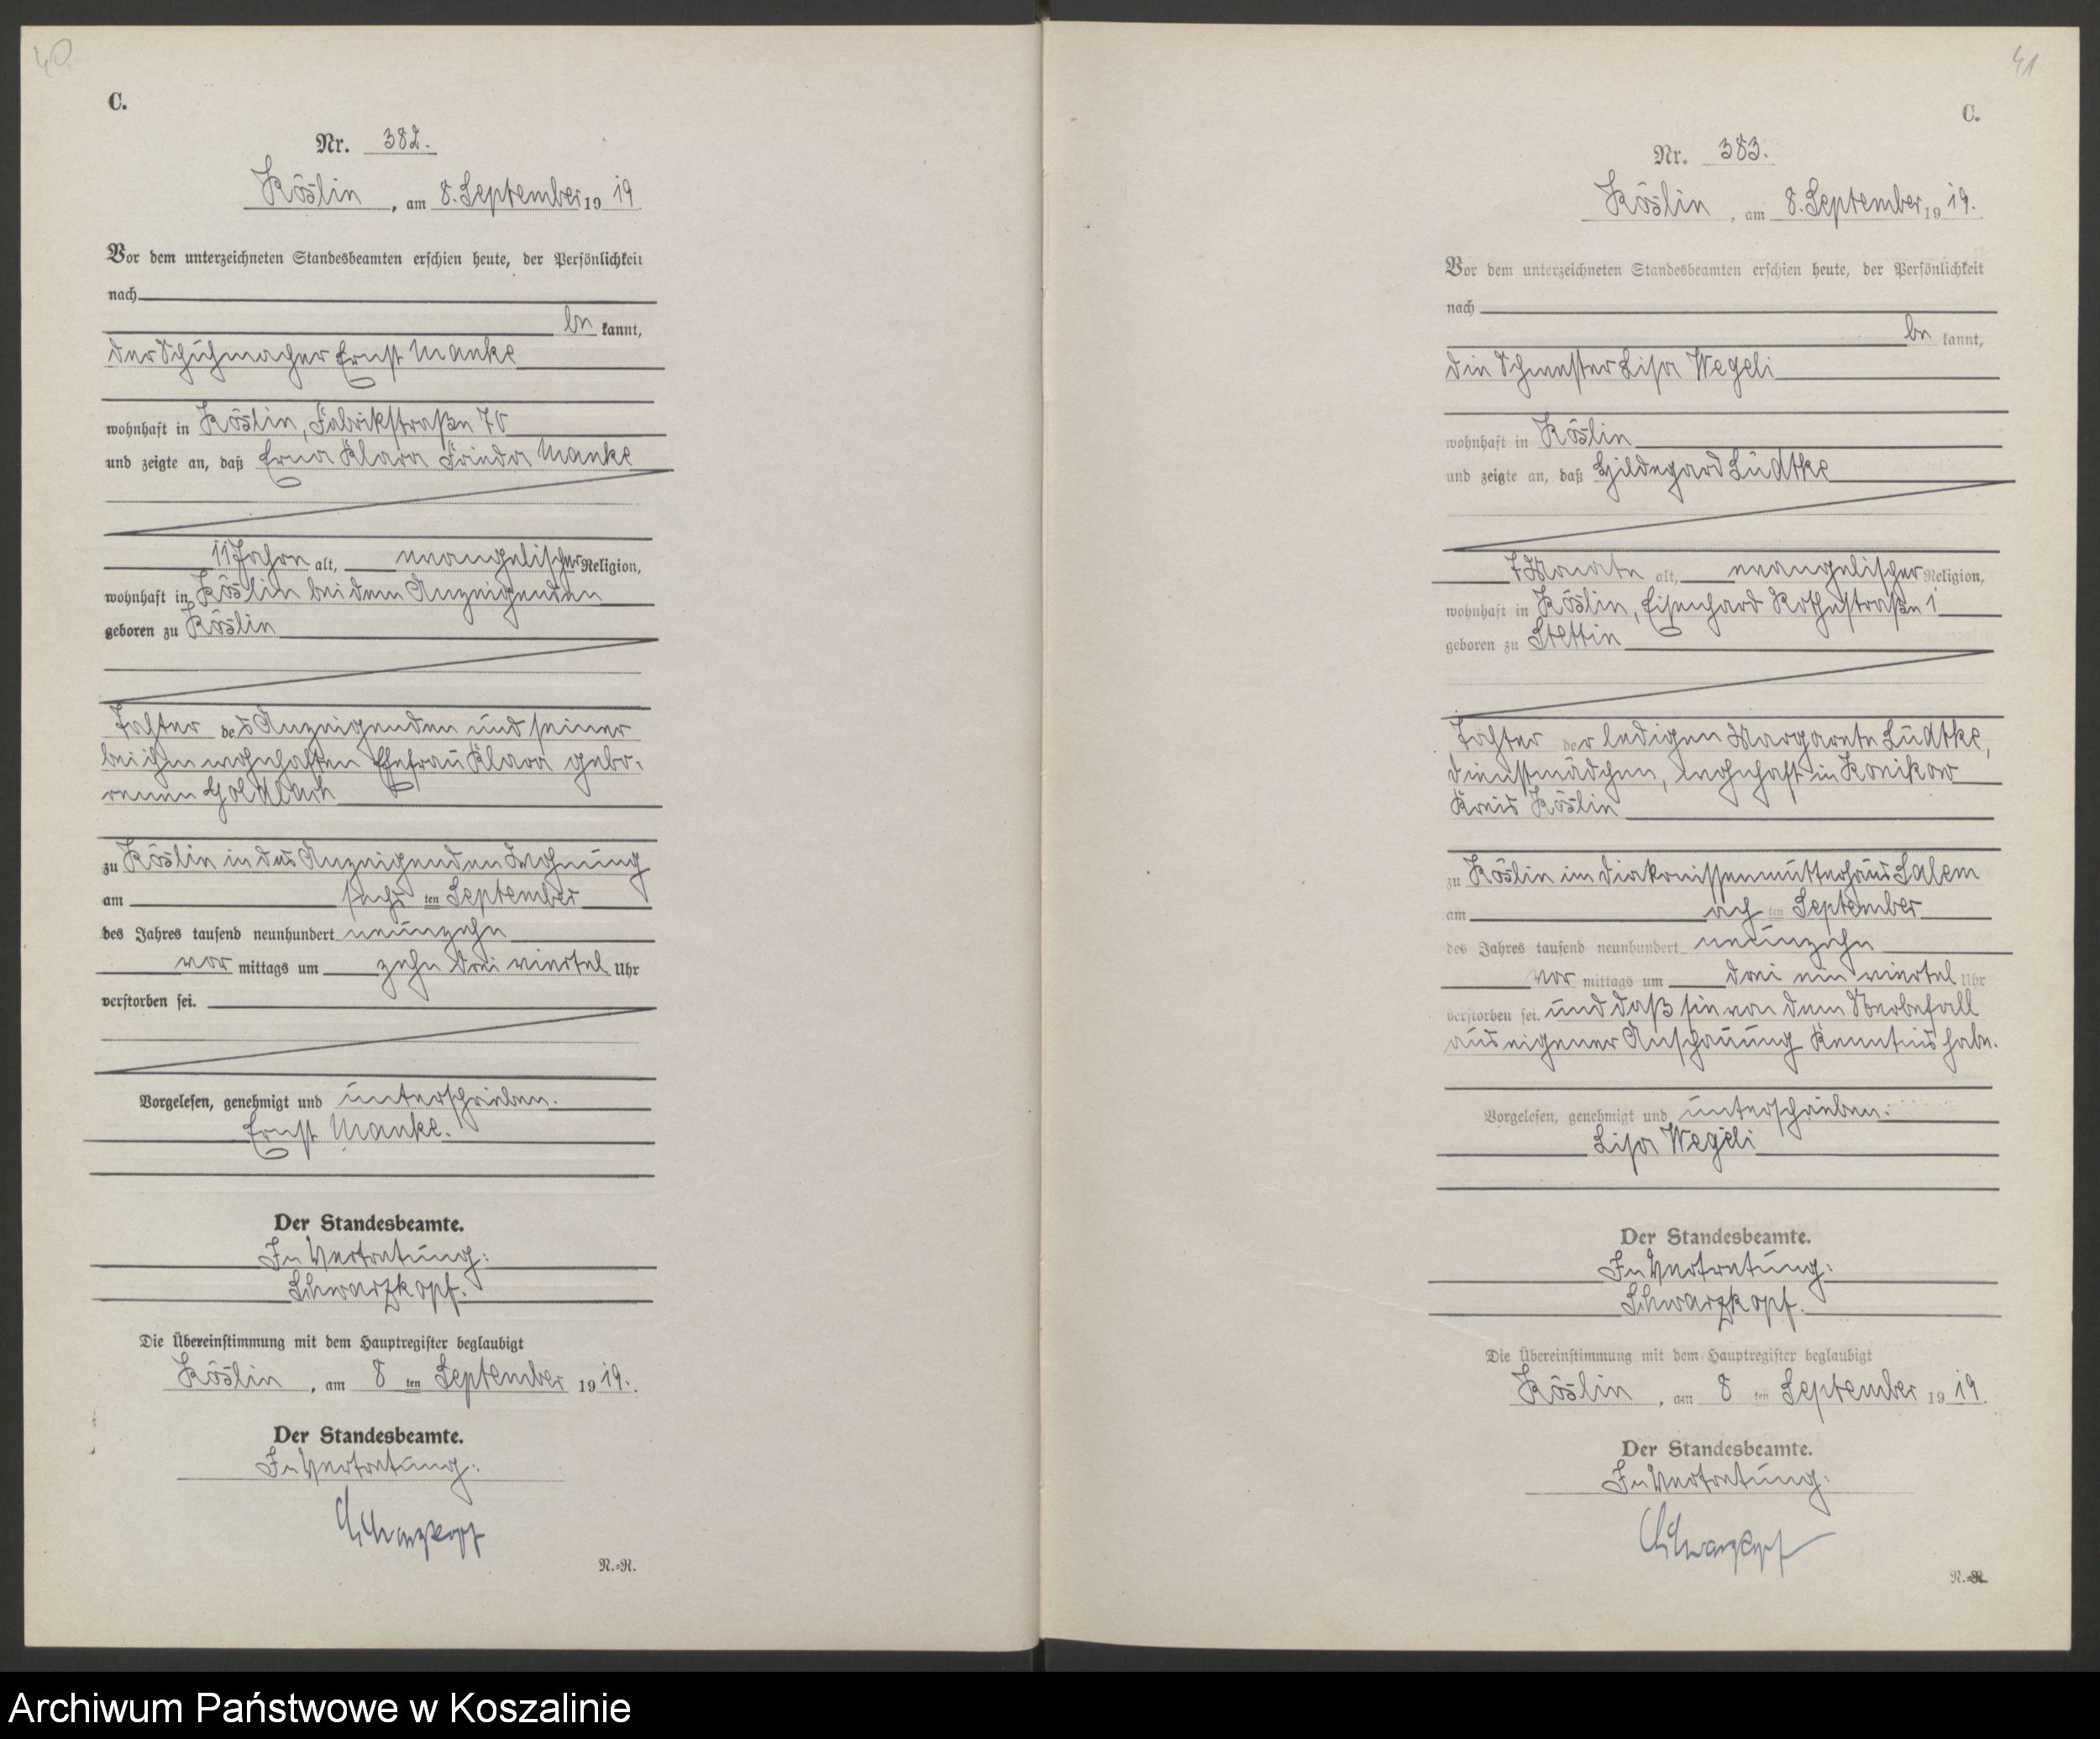 40
C.
Nr. 382.
Köslin, am 8. September 1919.
Vor dem unterzeichneten Standesbeamten erschien heute, der Persönlichkeit
nach
be kannt,
der Schuhmacher Ernst Manke
wohnhaft in Köslin, Fabrikstraße 70
und zeigte an, daß Erna Klara Frieda Manke
11 Jahre alt, evangelischer Religion,
wohnhaft in Köslin bei dem Anzeigenden
geboren zu Köslin
Tochter des Anzeigenden und seiner
bei ihm wohnhaften Ehefrau Klara gebo-
renen Goldbach
zu Köslin in des Anzeigenden Wohnung
am sechs ten September
des Jahres tausend neunhundert neunzehn
vor mittags um zehn drei viertel Uhr
verstorben sei.
Vorgelesen, genehmigt und unterschrieben.
Ernst Manke.
Der Standesbeamte.
In Vertretung:
Schwarzkopf.
Die Übereinstimmung mit dem Hauptregister beglaubigt
Köslin, am 8 ten September 1919.
Der Standesbeamte.
In Vertretung:
Schwarzkopf
R.=R.
41
C.
Nr. 383.
Köslin, am 8. September 1919.
Vor dem unterzeichneten Standesbeamten erschien heute, der Persönlichkeit
nach
be kannt,
die Schwester Lisa Wegeli
wohnhaft in Köslin
und zeigte an, daß Hildegard Lüdtke
7 Monate alt, evangelischer Religion,
wohnhaft in Köslin, Eisenhard Rothestraße 1
geboren zu Stettin
Tochter der ledigen Margarete Lüdtke,
Dienstmädchen, wohnhaft in Konikow
Kreis Köslin
zu Köslin im Diakonissenmutterhaus Salem
am ach ten September
des Jahres tausend neunhundert neunzehn
vor mittags um drei ein viertel Uhr
verstorben sei. und daß sie von dem Sterbefall
aus eigener Anschauung Kenntnis habe.
Vorgelesen, genehmigt und unterschrieben.
Lisa Wegeli
Der Standesbeamte.
In Vertretung:
Schwarzkopf.
Die Übereinstimmung mit dem Hauptregister beglaubigt
Köslin, am 8 ten September 1919.
Der Standesbeamte.
In Vertretung:
Schwarzkopf
R.=R.
Archiwum Państwowe w Koszalinie